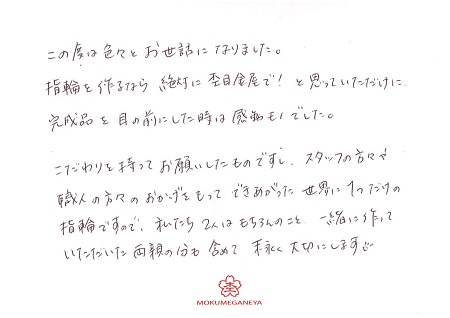 この度は色々とお世話になりました。
指輪を作るなら絶対に杢目金屋で！と思っていただけに
完成品を目の前にした時は感動モノでした。
こだわりを持ってお願いしたものですし、スタッフの方々や
職人の方々のおかげをもってできあがった世界に1つだけの
指輪ですので、私たち2人はもちろんのこと、一緒に作って
いただいた両親の分も含めて末永く大切にします
MOKUMEGANEYA